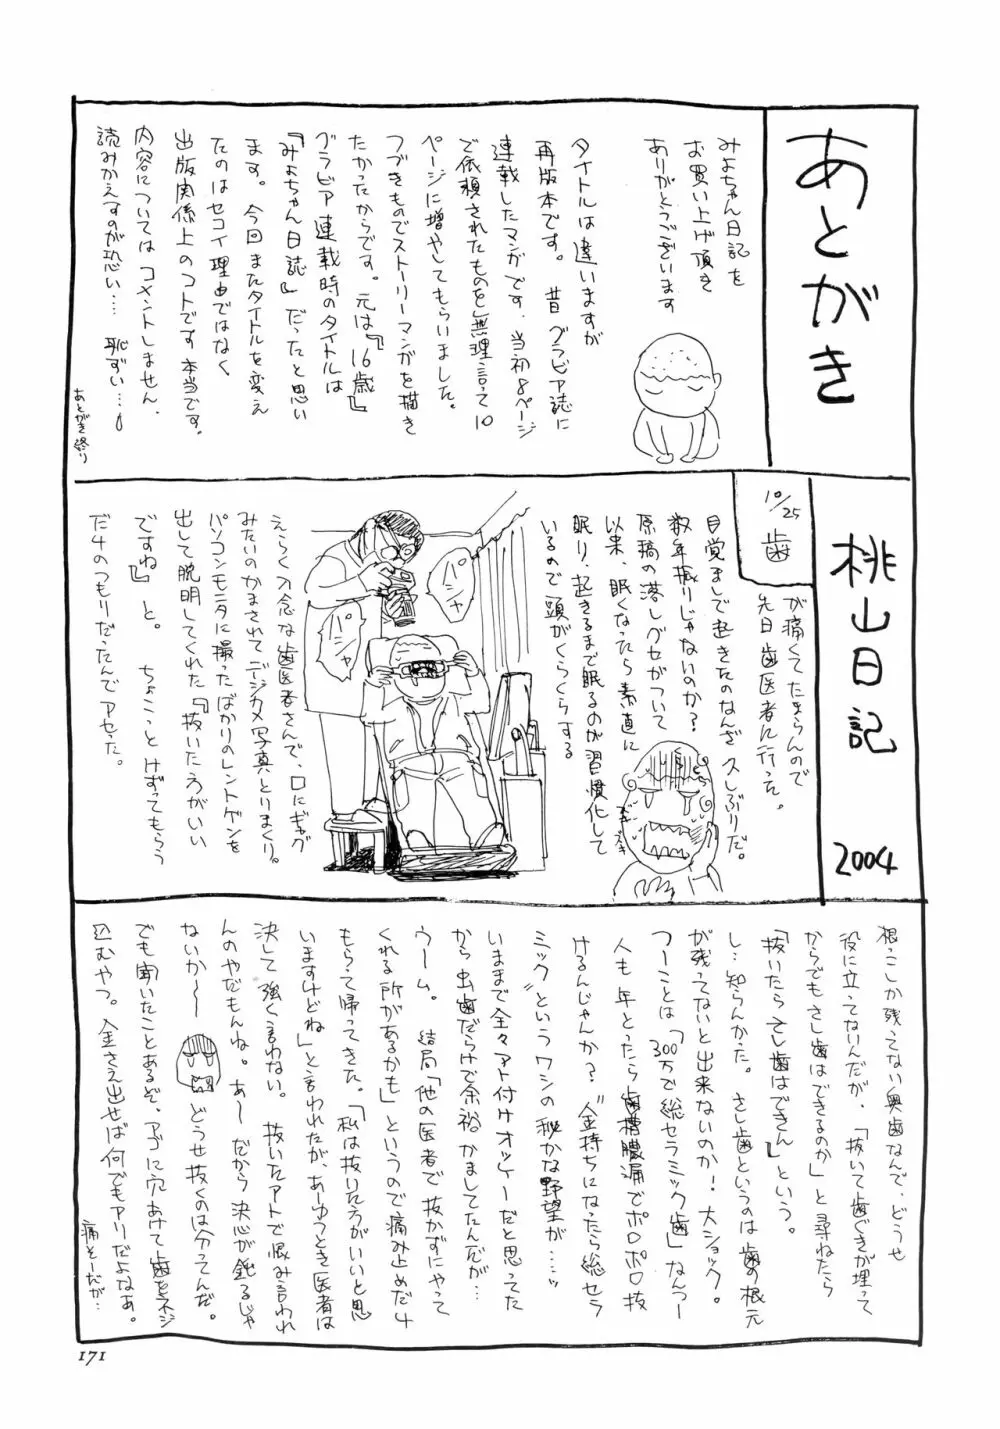 あとがき
みよちゃん日記を
お買い上げ頂き
ありがとうございます
タイトルは違いますが
再版本です。昔グラビア誌に
連載したマンガです、当初8ページ
で依頼されたものを無理言って10
ページに増やしてもらいました。
つづきものでストーリーマンガを描き
たかったからです。元は『16歳』
グラビア連載時のタイトルは
『みよちゃん日誌』だったと思い
ます。今回またタイトルを変え
たのはセコイ理由ではなく
出版関係上のコトです本当です。
内容についてはコメントしません、
読みかえすのが恐い… 恥ずい…
あとがき終り
桃山日記
2004
10/25
歯
が痛くてたまらんので
先日歯医者に行った。
目覚ましで起きたのなんざ久しぶりだ。
数年振りじゃないのか?
原稿の落しグセがついて
以来、眠くなったら素直に
眠り、起きるまで眠るのが習慣化して
いるので頭がくらくらする
パシャ
パシャ
えらく入念な歯医者さんで、口にギャグ
みたいのかまされてデジカメ写真とりまくり。
パソコンモニタに撮ったばかりのレントゲンを
出して説明してくれた『抜いた方がいい
ですね』と。 ちょこっとけずってもらう
だけのつもりだったんでアセった。
根っこしか残ってない奥歯なんで、どうせ
役に立ってないんだが、「抜いて歯ぐきが埋って
からでもさし歯はできるのか」と尋ねたら
「抜いたらさし歯はできん」という。
し…知らんかった。さし歯というのは歯の根元
が残ってないと出来ないのか!大ショック。
つーことは「300万で総セラミック歯」なんつー
人も年とったら歯槽膿漏でポロポロ抜
けるんじゃんか?〝金持ちになったら総セラ
ミック〟というワシの秘かな野望が…ッ
いままで全々アト付けオッケーだと思ってた
から虫歯だらけで余裕かましてたんだが…
ウーム。 結局「他の医者で抜かずにやって
くれる所があるかも」というので痛み止めだけ
もらって帰ってきた。「私は抜いた方がいいと思
いますけどね」と言われたが、あーゆうとき医者は
決して強く言わない。抜いたアトで恨み言われ
んのやだもんね。あ〜だから決心が鈍るじゃ
ないか〜〜 どうせ抜くのは分ってんだ。
でも聞いたことあるぞ、アゴに穴あけて歯をネジ
込むやつ。金さえ出せば何でもアリだよなあ。
痛そーだが…
171